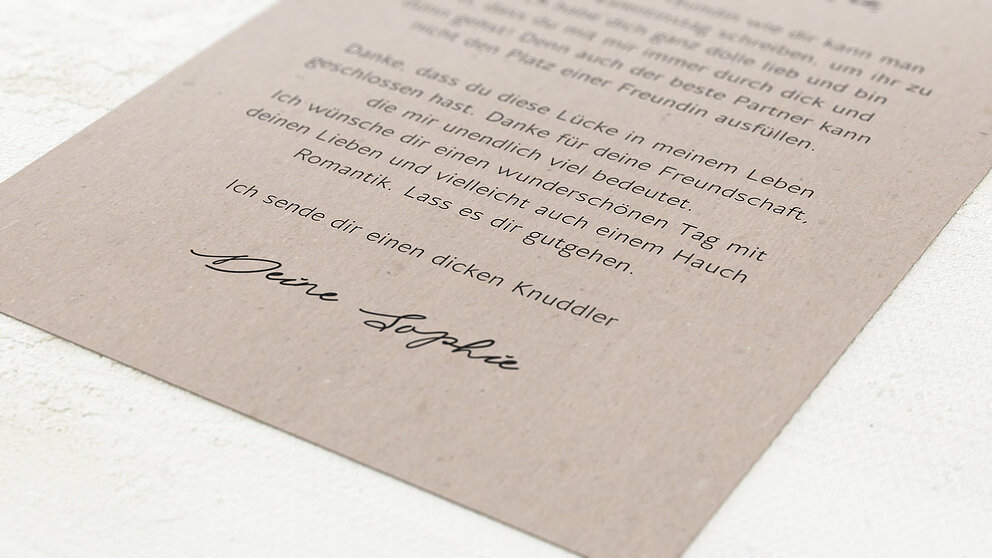 wie dir kann man
schreiben, um ihr zu
habe dich ganz dolle lieb und bin
dass du mit mir immer durch dick und
dünn gehst! Denn auch der beste Partner kann
nicht den Platz einer Freundin ausfüllen.
Danke, dass du diese Lücke in meinem Leben
geschlossen hast. Danke für deine Freundschaft,
die mir unendlich viel bedeutet.
Ich wünsche dir einen wunderschönen Tag mit
deinen Lieben und vielleicht auch einem Hauch
Romantik. Lass es dir gutgehen.
Ich sende dir einen dicken Knuddler
Deine Sophie